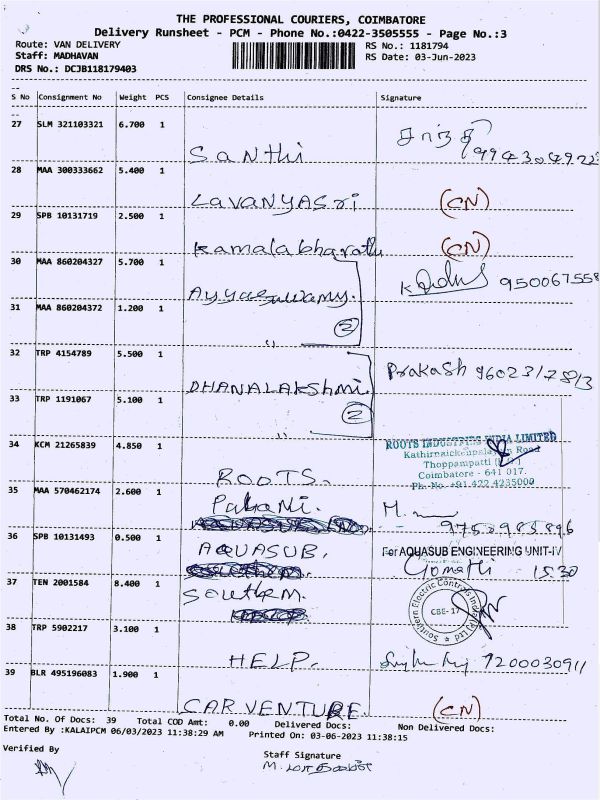 THE PROFESSIONAL COURIERS, COIMBATORE
Delivery Runsheet - PCM - Phone No.:0422-3505555 - Page No.:3
Route: VAN DELIVERY
RS No.: 1181794
Staff: MADHAVAN
RS Date: 03-Jun-2023
DRS No.: DCJB118179403
S No Consignment No Weight PCS Consignee Details Signature
27 SLM 321103321 6.700 1
சாந்தி
Santhi
994304922
28 MAA 300333662 5.400 1
Lavanyasri (CN)
29 SPB 10131719 2.500 1
Kamalabharathi (CN)
30 MAA 860204327 5.700 1
Ayyasuwamy. 950067558
31 MAA 860204372 1.200 1
,, 2
32 TRP 4154789 5.500 1
Prakash 9602317813
DHANALAKSHMI
33 TRP 1191067 5.100 1
,, 2
34 KCM 21265839 4.850 1
ROOTS INDUSTRIES INDIA LIMITED
Road
Thoppampatti
Coimbatore - 641 017.
Ph No +91 422 4235000
ROOTS.
35 MAA 570462174 2.600 1
Palani. M.
9752983896
36 SPB 10131493 0.500 1
AQUASUB. For AQUASUB ENGINEERING UNIT-IV
Gomathi 15.30
37 TEN 2001584 8.400 1
Southern
Southern Electric Controls India (P) Ltd
CBE-17
38 TRP 5902217 3.100 1
HELP. 7200030911
39 BLR 495196083 1.900 1
CAR VENTURE. (CN)
Total No. Of Docs: 39 Total COD Amt: 0.00 Delivered Docs: Non Delivered Docs:
Entered By :KALAIPCM 06/03/2023 11:38:29 AM Printed On: 03-06-2023 11:38:15
Verified By
Staff Signature